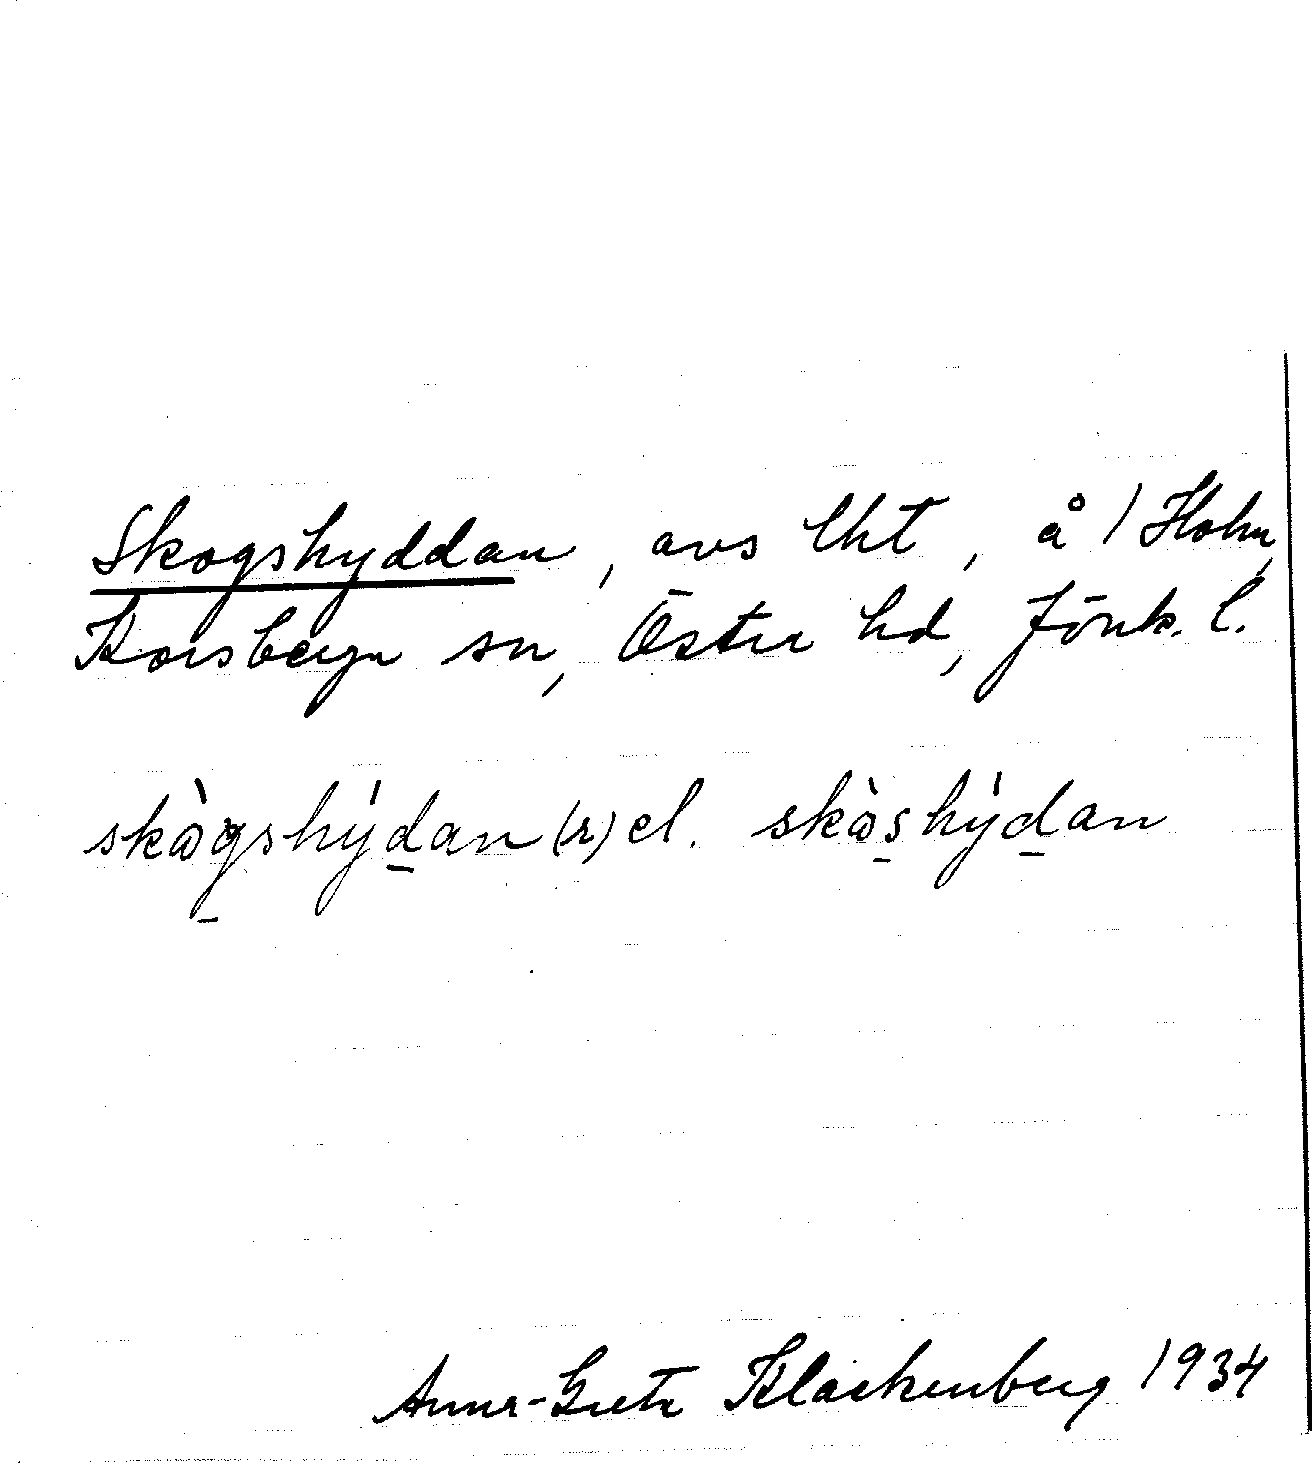 Skogshyddan, avs lht, å 1 Holm,
Korsberga sn, Östra hd, Jönk. l.
skògshýdan (r) el. skòshýdan
Anna-Greta Klackenberg 1934